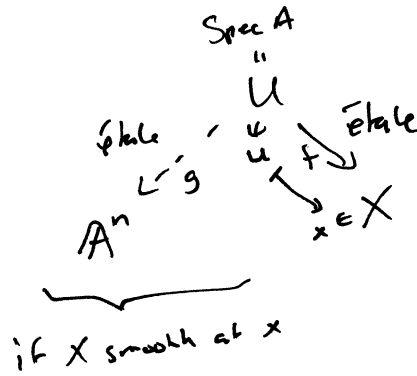 Spec A
"
U
étale étale
ψ
g u f
𝔸ⁿ x ∈ X
if X smooth at x